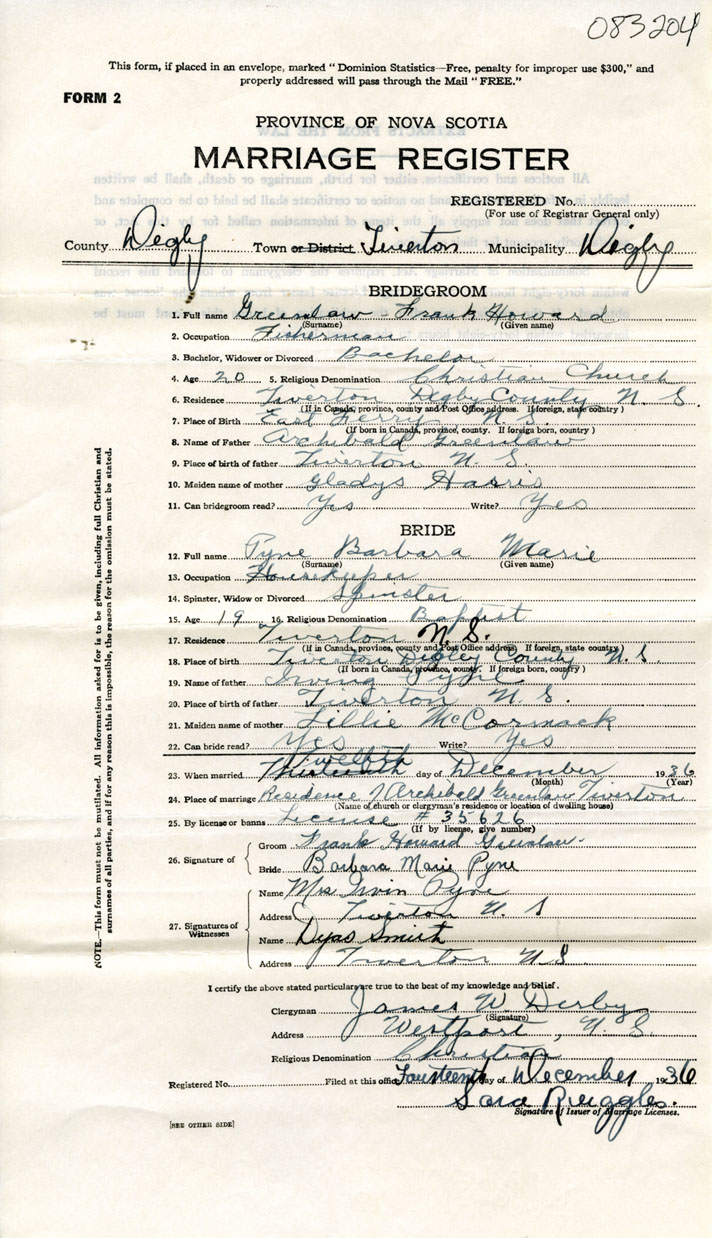 083204
This form, if placed in an envelope, marked "Dominion Statistics—Free, penalty for improper use $300," and
properly addressed will pass through the Mail "FREE."
FORM 2
PROVINCE OF NOVA SCOTIA
MARRIAGE REGISTER
REGISTERED No.
(For use of Registrar General only)
County Digby Town or District Tiverton Municipality Digby
BRIDEGROOM
1. Full name Greenlaw - Frank Howard
(Surname) (Given name)
2. Occupation Fisherman
3. Bachelor, Widower or Divorced Bachelor
4. Age 20 5. Religious Denomination Christian Church
6. Residence Tiverton Digby County N. S.
(If in Canada, province, county and Post Office address. If foreign, state country)
7. Place of Birth East Ferry N. S.
(If born in Canada, province, county. If foreign born, country)
8. Name of Father Archibald Greenlaw
9. Place of birth of father Tiverton N. S
10. Maiden name of mother Gladys Harris
11. Can bridegroom read? Yes Write? Yes
BRIDE
12. Full name Pyne Barbara Marie
(Surname) (Given name)
13. Occupation Housekeeper
14. Spinster, Widow or Divorced Spinster
15. Age 19 16. Religious Denomination Baptist
17. Residence Tiverton N. S.
(If in Canada, province, county and Post Office address. If foreign, state country)
18. Place of birth Tiverton Digby County N. S.
(If born in Canada, province, county. If foreign born, country)
19. Name of father Irving Pyne
20. Place of birth of father Tiverton N. S.
21. Maiden name of mother Lillie McCormack
22. Can bride read? Yes Write? Yes
Twelfth
23. When married Thirteenth day of December 1936
(Month) (Year)
24. Place of marriage Residence of Archibald Greenlaw Tiverton
(Name of church or clergyman's residence or location of dwelling house)
25. By license or banns License # 35626
(If by license, give number)
26. Signature of Groom Frank Howard Greenlaw
Bride Barbara Marie Pyne
27. Signatures of Witnesses
Name Mrs Irvin Pyne
Address Tiverton N. S
Name Dyas Smith
Address Tiverton N.S.
I certify the above stated particulars are true to the best of my knowledge and belief.
Clergyman James W. Derby
(Signature)
Address Westport, N. S.
Religious Denomination Christian
Registered No. Filed at this office Fourteenth day of December 1936
Sara Ruggles.
Signature of Issuer of Marriage Licenses.
[SEE OTHER SIDE]
NOTE.—This form must not be mutilated. All information asked for is to be given, including full Christian and
surnames of all parties, and if for any reason this is impossible, the reason for the omission must be stated.